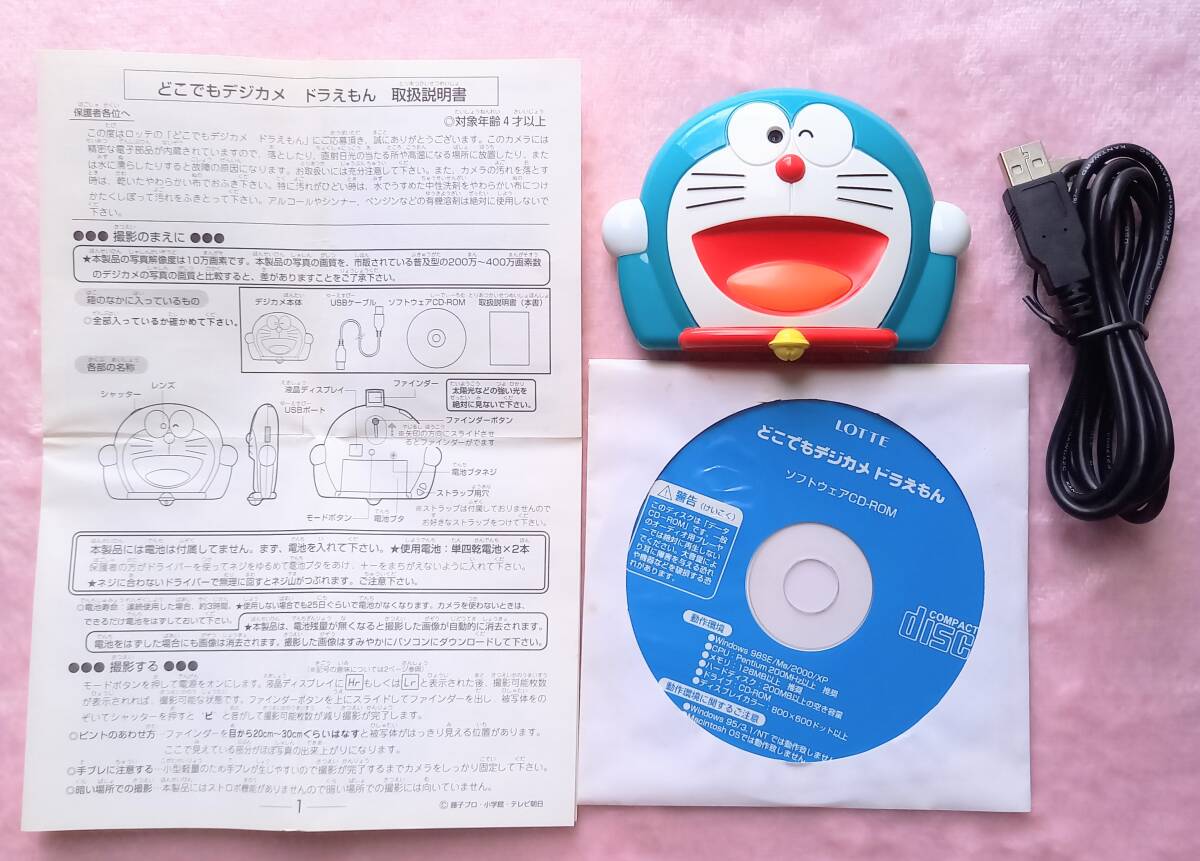 どこでもデジカメ　ドラえもん　取扱説明書
保護者各位へ
◎対象年齢4才以上
この度はロッテの「どこでもデジカメ　ドラえもん」にご応募頂き、誠にありがとうございます。このカメラには
精密な電子部品が内蔵されていますので、落としたり、直射日光の当たる所や高温になる場所に放置したり、また
は水に濡らしたりすると故障の原因になります。お取扱いには充分注意して下さい。また、カメラの汚れを落とす
時は、乾いたやわらかい布でおふき下さい。特に汚れがひどい時は、水でうすめた中性洗剤をやわらかい布につけ
かたくしぼって汚れをふきとって下さい。アルコールやシンナー、ベンジンなどの有機溶剤は絶対に使用しないで
下さい。
●●● 撮影のまえに ●●●
★本製品の写真解像度は10万画素です。本製品の写真の画質を、市販されている普及型の200万～400万画素数
のデジカメの写真の画質と比較すると、差がありますことをご了承下さい。
箱のなかに入っているもの
◎全部入っているか確かめて下さい。
デジカメ本体
USBケーブル
ソフトウェアCD-ROM
取扱説明書（本書）
各部の名称
レンズ
シャッター
液晶ディスプレイ
USBポート
ファインダー
太陽光などの強い光を
絶対に見ないで下さい。
ファインダーボタン
※矢印の方向にスライドさせ
るとファインダーがでます
電池ブタネジ
ストラップ用穴
モードボタン
電池ブタ
※ストラップは付属しておりませんので
お好きなストラップをつけて下さい。
本製品には電池は付属してません。まず、電池を入れて下さい。★使用電池：単四乾電池×2本
保護者の方がドライバーを使ってネジをゆるめて電池ブタをあけ、＋－をまちがえないように入れて下さい。
★ネジに合わないドライバーで無理に回すとネジ山がつぶれます。ご注意下さい。
◎電池寿命：連続使用した場合、約3時間。★使用しない場合でも25日ぐらいで電池がなくなります。カメラを使わないときは、
できるだけ電池をはずしておいて下さい。
★本製品は、電池残量が無くなると撮影した画像が自動的に消去されます。
電池をはずした場合にも画像は消去されます。撮影した画像はすみやかにパソコンにダウンロードして下さい。
●●● 撮影する ●●●
（※記号の意味については2ページ参照）
モードボタンを押して電源をオンにします。液晶ディスプレイに Hr もしくは Lr と表示された後、撮影可能枚数
が表示されれば、撮影可能な状態です。ファインダーボタンを上にスライドしてファインダーを出し、被写体をの
ぞいてシャッターを押すと "ピ" と音がして撮影可能枚数が減り撮影が完了します。
◎ピントのあわせ方…ファインダーを目から20cm～30cmぐらいはなすと被写体がはっきり見える位置があります。
ここで見えている部分がほぼ写真の出来上がりになります。
◎手ブレに注意する…小型軽量のため手ブレが生じやすいので撮影が完了するまでカメラをしっかり固定して下さい。
◎暗い場所での撮影…本製品にはストロボ機能がありませんので暗い場所での撮影には向いていません。
1
© 藤子プロ・小学館・テレビ朝日
LOTTE
どこでもデジカメ ドラえもん
ソフトウェアCD-ROM
警告（けいこく）
このディスクは「データ
CD-ROM」です。一般
のオーディオ用プレーヤ
ーでは絶対に再生しない
でください。大音量によ
り耳に障害を与える恐れ
や機器などを破損する恐
れがあります。
COMPACT
disc
動作環境
●Windows 98SE/Me/2000/XP
●CPU：Pentium 200MHz以上 推奨
●メモリ：128MB以上 推奨
●ハードディスク：200MB以上の空き容量
●ドライブ：CD-ROM
●ディスプレイカラー：800×600ドット以上
動作環境に関するご注意
●Windows 95/3.1/NTでは動作致しません
●Macintosh OSでは動作致しません